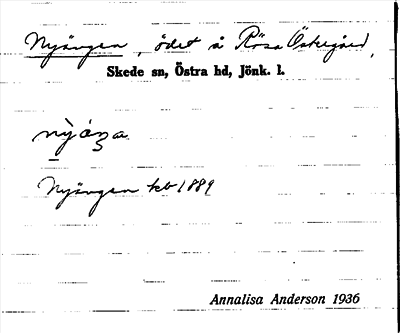 Nyängen, ödet å Rösa Östergård,
Skede sn, Östra hd, Jönk. l.
Nyängen kb 1889
Annalisa Anderson 1936